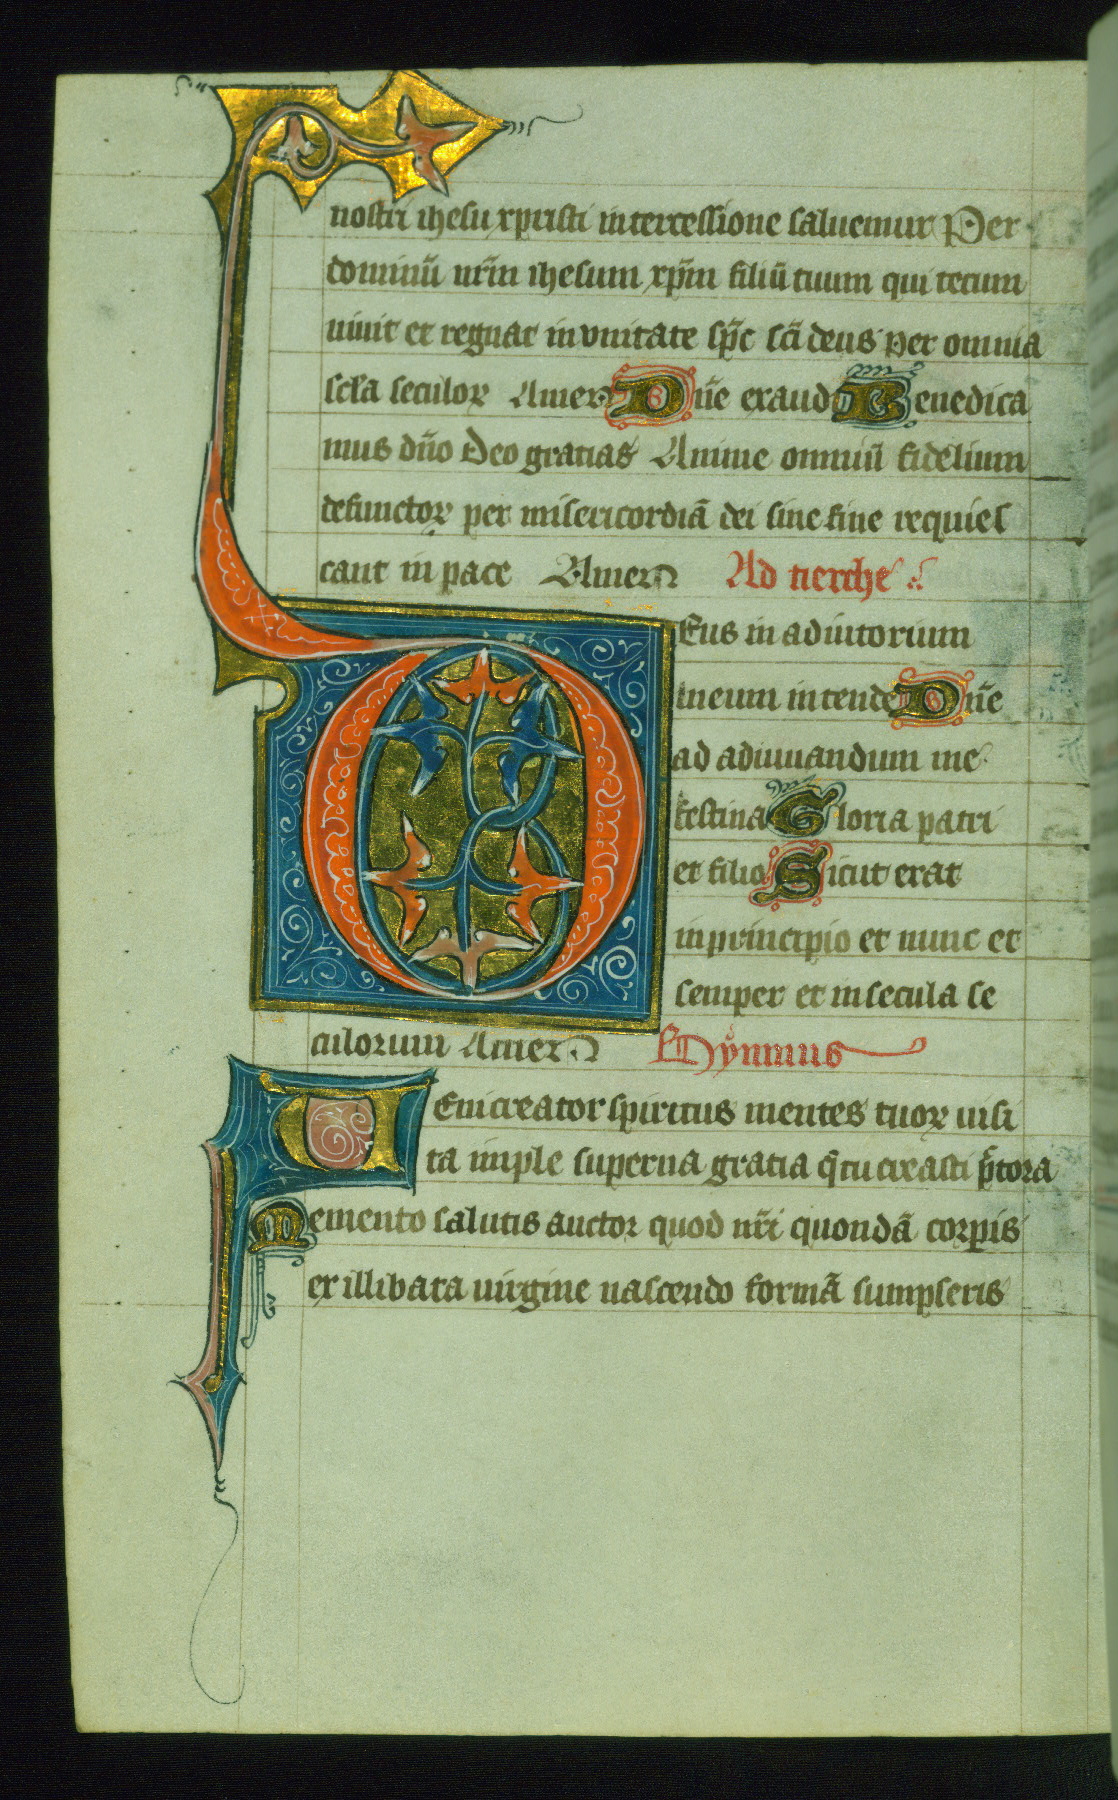 nostri ihesu xpristi intercessione saluemur Per
dominū nr̄m ihesum xp̄m filiū tuum qui tecum
uiuit et regnat in vnitate sp̄c sc̄i deus per omnia
scl̄a seculoꝝ Amen Dn̄e exaudi Benedica
mus dn̄o Deo gratias Anime omniū fidelium
defunctoꝝ per misericordiā dei sine fine requies
cant in pace Amen Ad tierche
Deus in adiutorium
meum intende Dn̄e
ad adiuuandum me
festina Gloria patri
et filio Sicut erat
in principio et nunc et
semper et in secula se
culorum Amen Hymnus
Ueni creator spiritus mentes tuoꝝ uisi
ta imple superna gratia q̄ tu creasti p̄tora
Memento salutis auctor quod nr̄i quondā corpis
ex illibata uirgine nascendo formā sumpseris